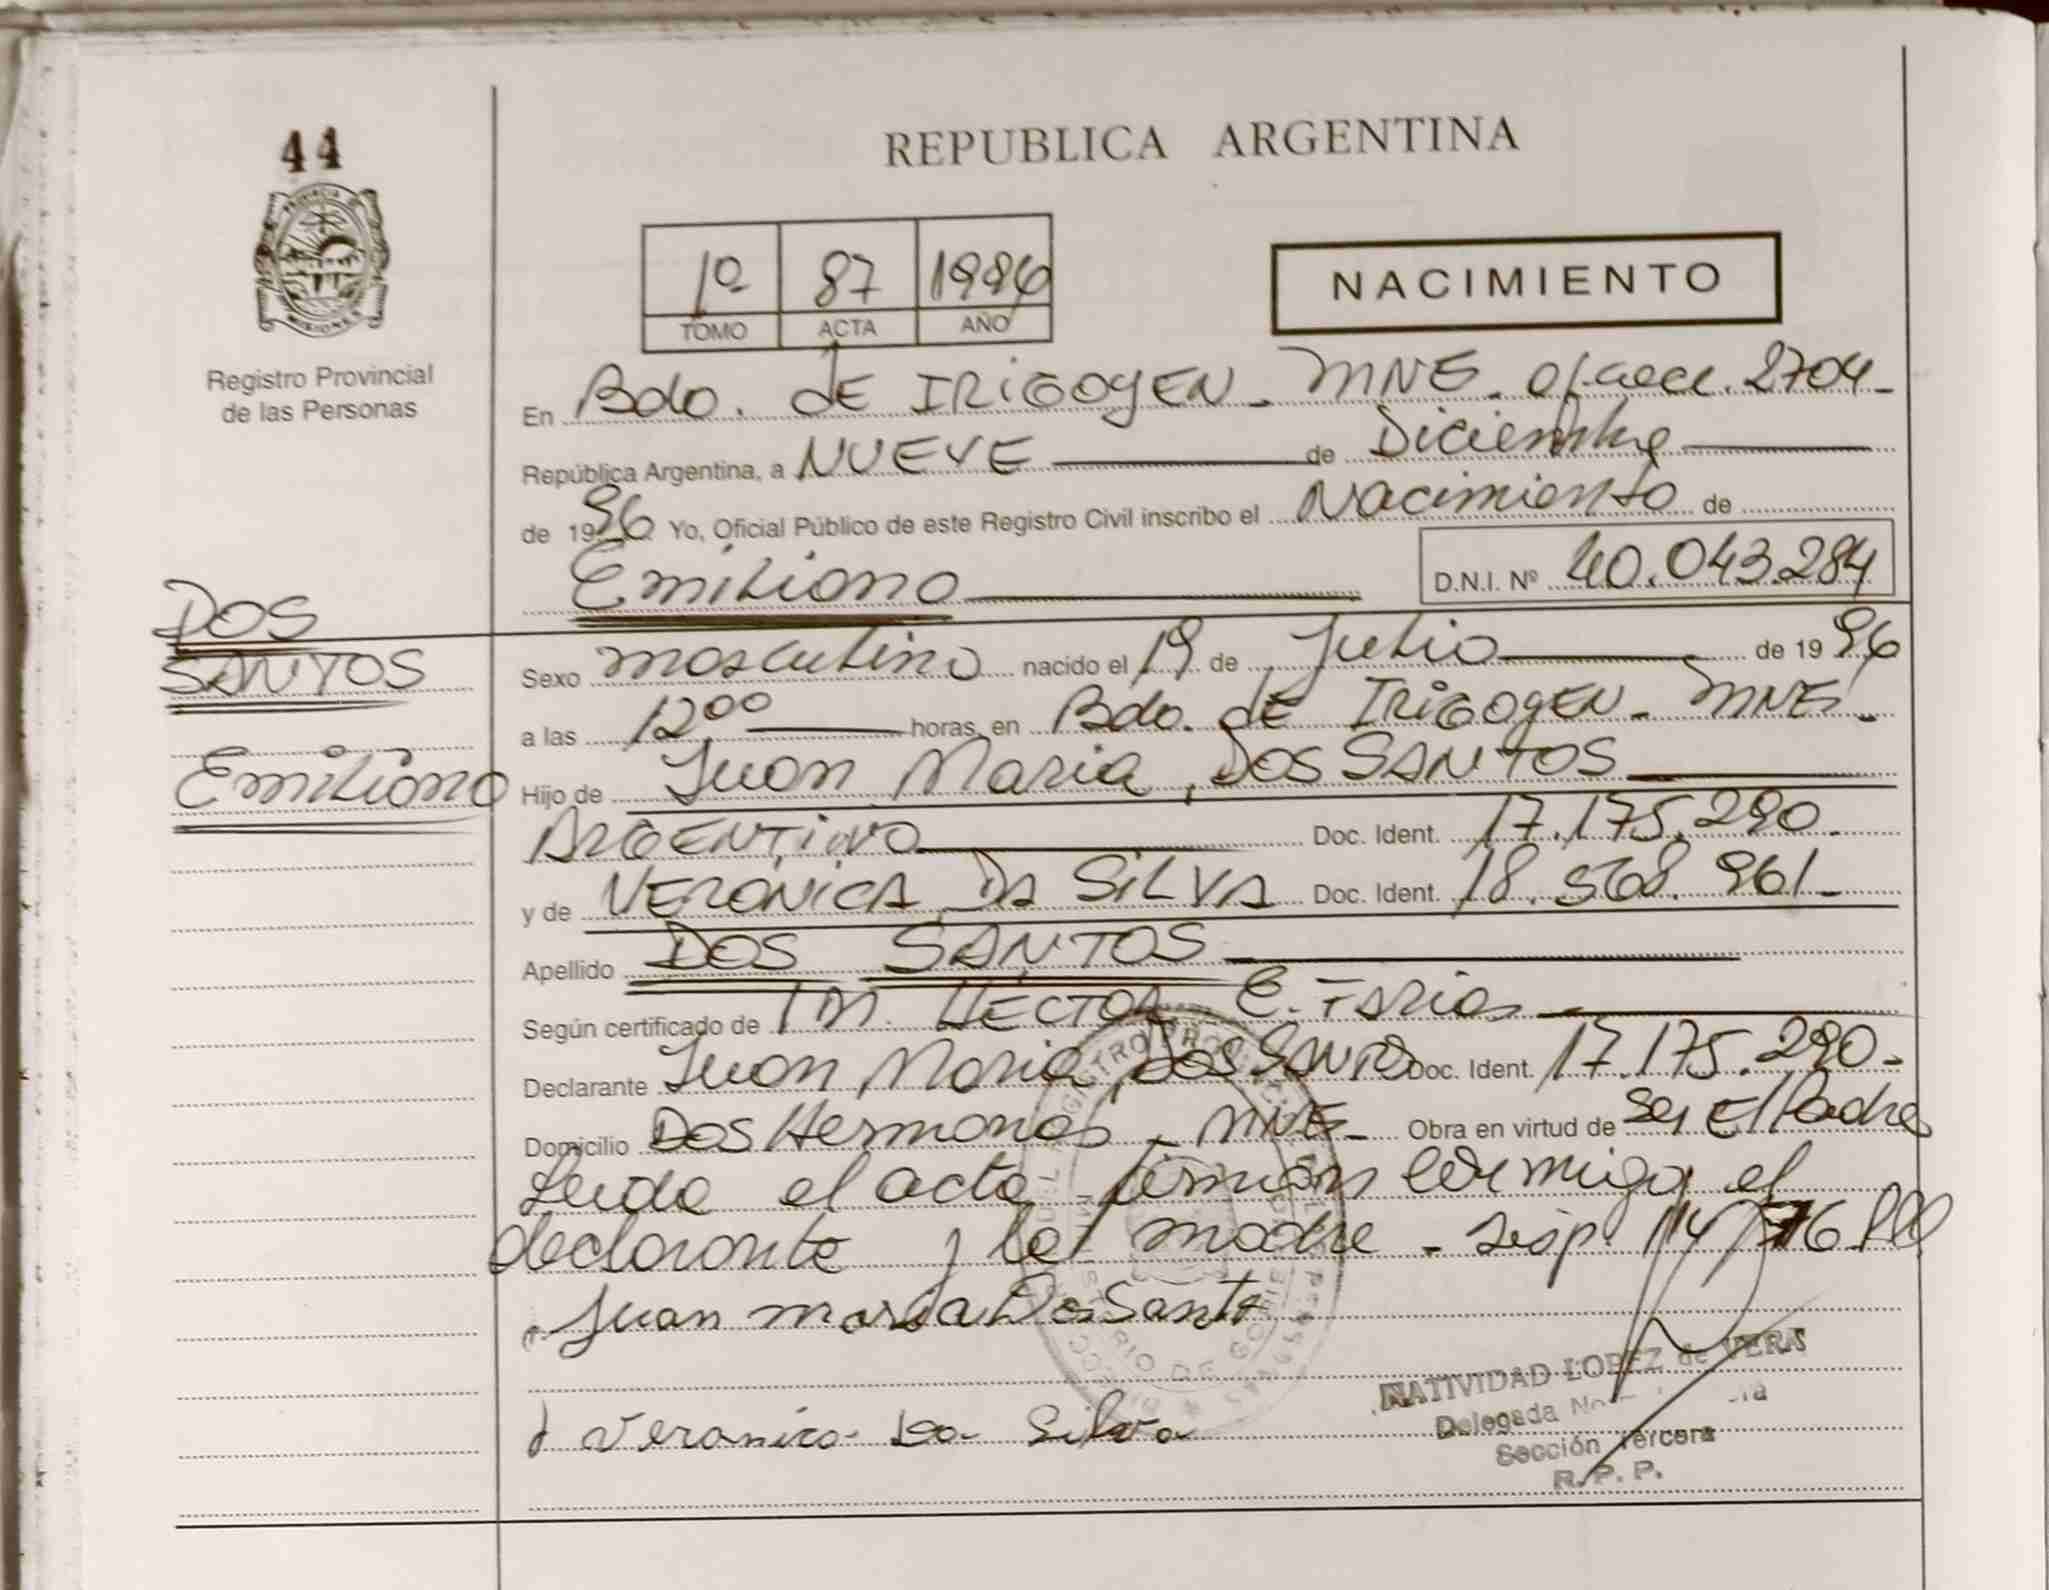 44
REPUBLICA ARGENTINA
1º 87 1996
TOMO ACTA AÑO
NACIMIENTO
PROVINCIA DE
MISIONES
Registro Provincial
de las Personas
En Bdo. de IRIGOYEN - MNES. of. secc. 2704 -
República Argentina, a NUEVE de Diciembre
de 1996 Yo, Oficial Público de este Registro Civil inscribo el Nacimiento de
Emiliano D.N.I. Nº 40.043.284
DOS
SANTOS
Emiliano
Sexo masculino nacido el 19 de Julio de 1996
a las 12°° horas, en Bdo. de IRIGOYEN - MNES -
Hijo de Juan Maria, DOS SANTOS
ARGENTINO Doc. Ident. 17.175.290.
y de VERONICA DA SILVA Doc. Ident. 18.568.961-
Apellido DOS SANTOS
Según certificado de HECTOR E. FARIAS
Declarante Juan Maria DOS SANTOS Doc. Ident. 17.175.290-
Domicilio Dos Hermanas - MNES - Obra en virtud de ser El Padre
Leida el acta firman conmigo el
declarante y la madre -
Juan maria Dos Santo
Veronica Da Silva
NATIVIDAD LOPEZ de VERA
Delegada
Sección Tercera
R. P. P.